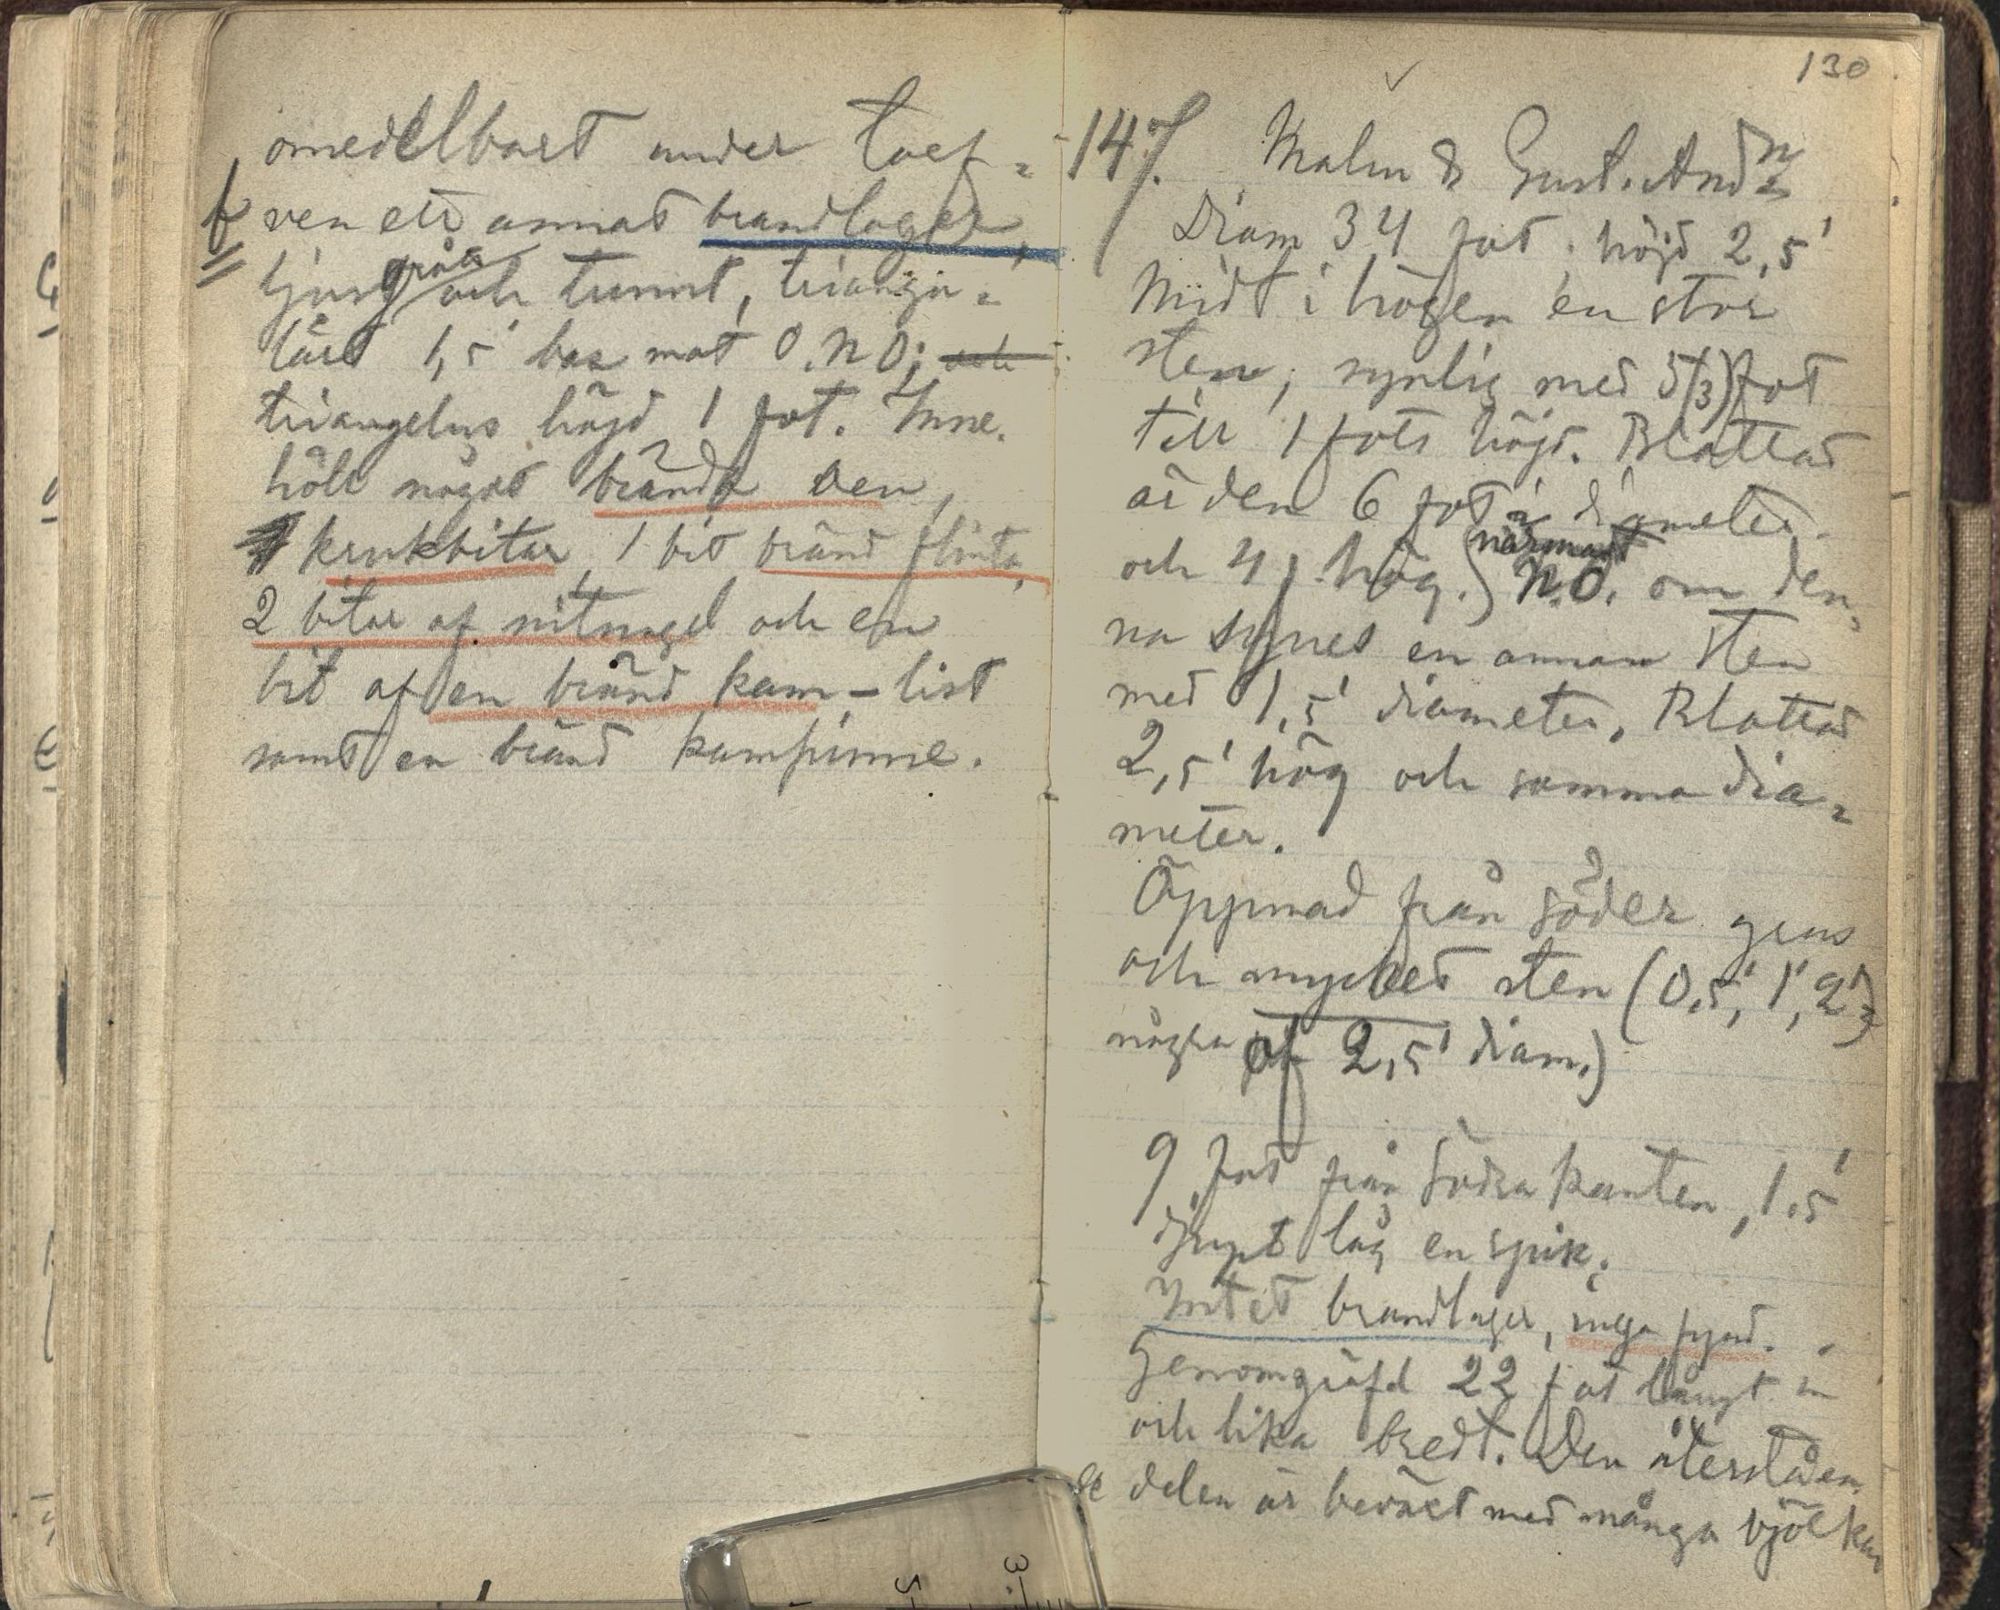 omedelbart under torf-
f ven ett annat brandlager,
ljust grått och tunnt, triangu-
lärt 1,5' bas mot O.N.O; och
triangelns höjd 1 fot. Inne-
höll något brända ben,
krukbitar, 1 bit bränd flinta,
2 bitar af nitnagel och en
bit af en bränd kam-list
samt en bränd kampinne.
130
147. Malm & Gust. And:n
Diam 34 fot, höjd 2,5'
Midt i högen en stor
sten, synlig med 5 (3) fot
till 1 fots höjd. Blottad
är den 6 fot i diameter
och 4 f. hög.) närmast
N.O. om den-
na synes en annan sten
med 1,5' diameter, Blottad
2,5' hög och samma dia-
meter.
Öppnad från söder grus
och mycket sten (0,5', 1', 2',
några af 2,5' diam.)
9 fot från södra kanten, 1,5'
djupt låg en spik.
Intet brandlager, inga fynd.
Genomgräfd 22 fot långt in
och lika bredt. Den återståen
de delen är beväxt med många björkar